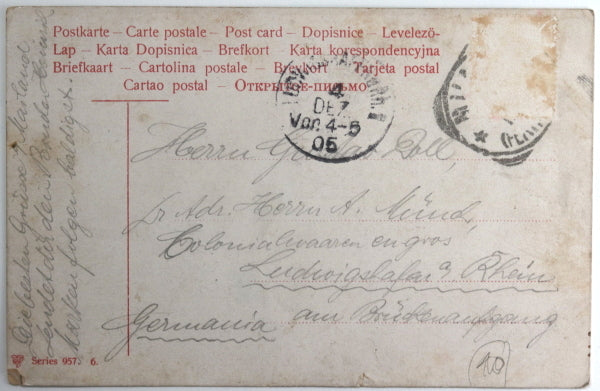 Postkarte – Carte postale – Post card – Dopisnice – Levelezö-
Lap – Karta Dopisnica – Brefkort – Karta korespondencyjna
Briefkaart – Cartolina postale – Brevkort – Tarjeta postal
Cartao postal – Открытое-письмо
4
DEZ
Vor. 4-5
05
Herrn Gustav Doll,
pr Adr. Herrn A. Münd,
Colonialwaaren en gros
Ludwigshafen a Rhein
am Brückenaufgang
Germania
Die besten Grüsse v. Mailand
sendet dir dein Bruder
Karten folgen baldigst.
Series 957. 6.
40